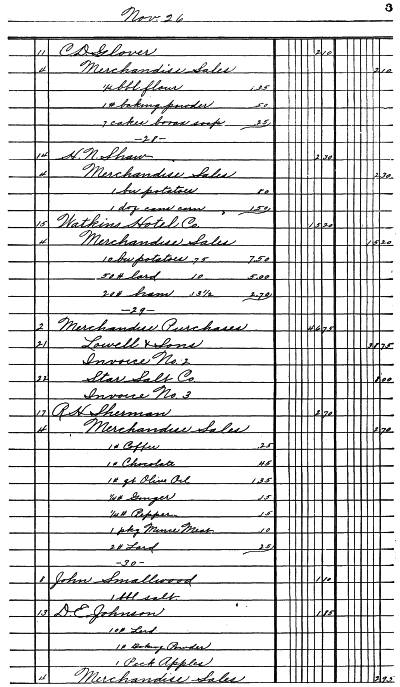 3
Nov. 26
11 C D Glover 2 10
4 Merchandise Sales 2 10
1/4 bbl flour 1.35
1# baking powder 50
7 cakes borax soap 25
-28-
14 H. N. Shaw 2 30
4 Merchandise Sales 2 30
1 bu potatoes 80
1 doz cans corn 1.50
15 Watkins Hotel Co. 15 20
4 Merchandise Sales 15 20
10 bu potatoes 75 7.50
50# lard 10 5.00
20# ham 13 1/2 2.70
-29-
2 Merchandise Purchases 46 75
21 Lowell & Sons 38 75
Invoice No. 2
22 Star Salt Co. 8 00
Invoice No. 3
17 R. H. Sherman 2 70
4 Merchandise Sales 2 70
1# Coffee 25
1# Chocolate 45
1# qt Olive Oil 1.35
1/4# Ginger 15
1/4# Pepper 15
1 pkg Mince Meat 10
2# Lard 25
-30-
8 John Smallwood 1 10
1 bbl salt
13 D. E. Johnson 1 85
10# Lard
1# Baking Powder
1 Peck Apples
4 Merchandise Sales 2 95